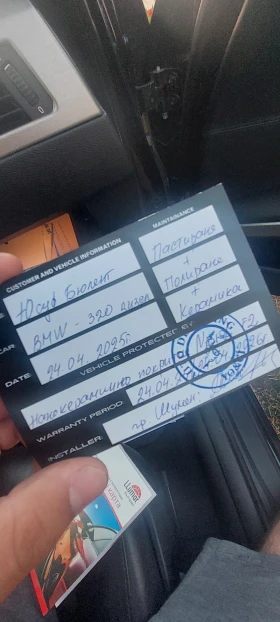 CUSTOMER AND VEHICLE INFORMATION
Юсуф Бюлент
CAR
BMW - 320 дизел
DATE:
24.04.2025г.
MAINTANANCE
Пастиране
+
Полиране
+
Керамика
VEHICLE PROTECTED BY
Нанокерамично
WARRANTY PERIOD
24.04.
INSTALLER:
гр. Шумен
LLumar